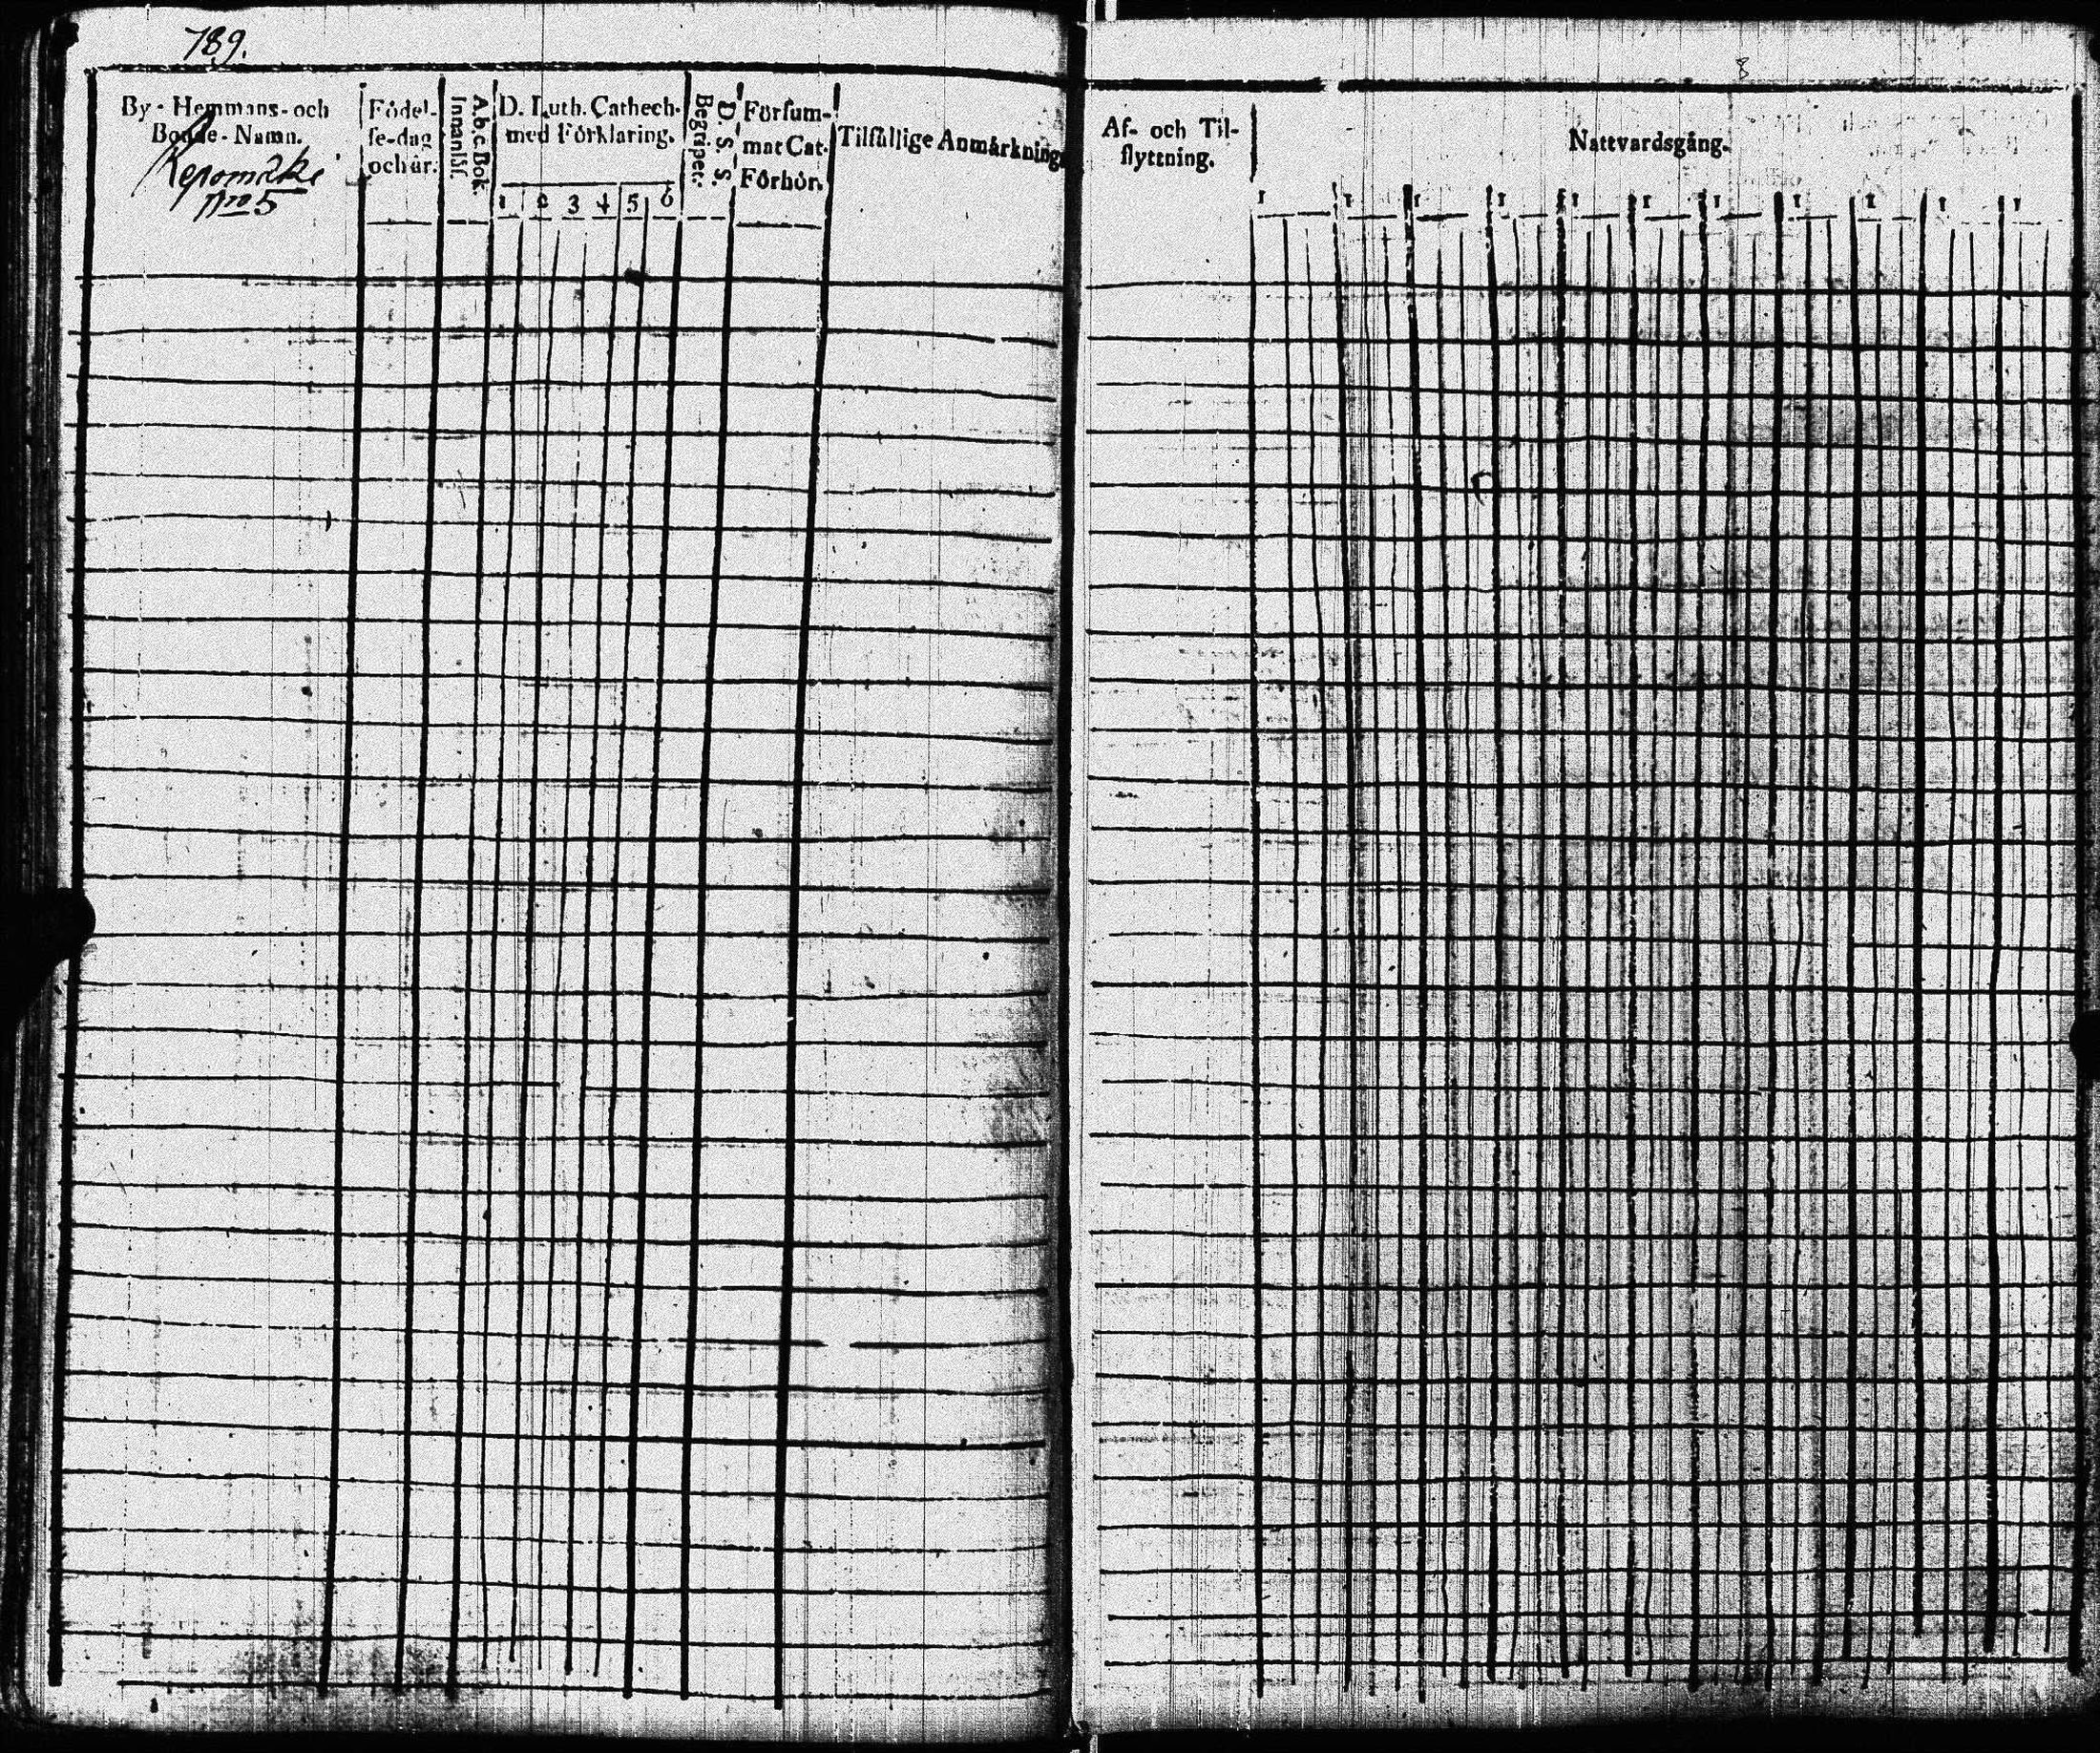 789.
By-Hemmans-och
Bonde-Namn.
Repomäki
Nro 5
Födel-
se-dag
och år.
A.b.c. Bok.
Innantil.
D. Luth. Cathech-
med Förklaring.
1 2 3 4 5 6
D. S. S.
Begriper.
Försum-
mat Cat.
Förhör.
Tilfällige Anmärkning
Af- och Til-
flyttning.
Nattvardsgång.
1 1 1 1 1 1 1 1 1 1 1